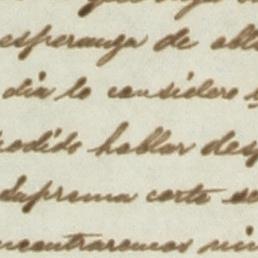 esperanza de obte
dia lo considero
podido hablar des
suprema corte se
ncontraremos nin